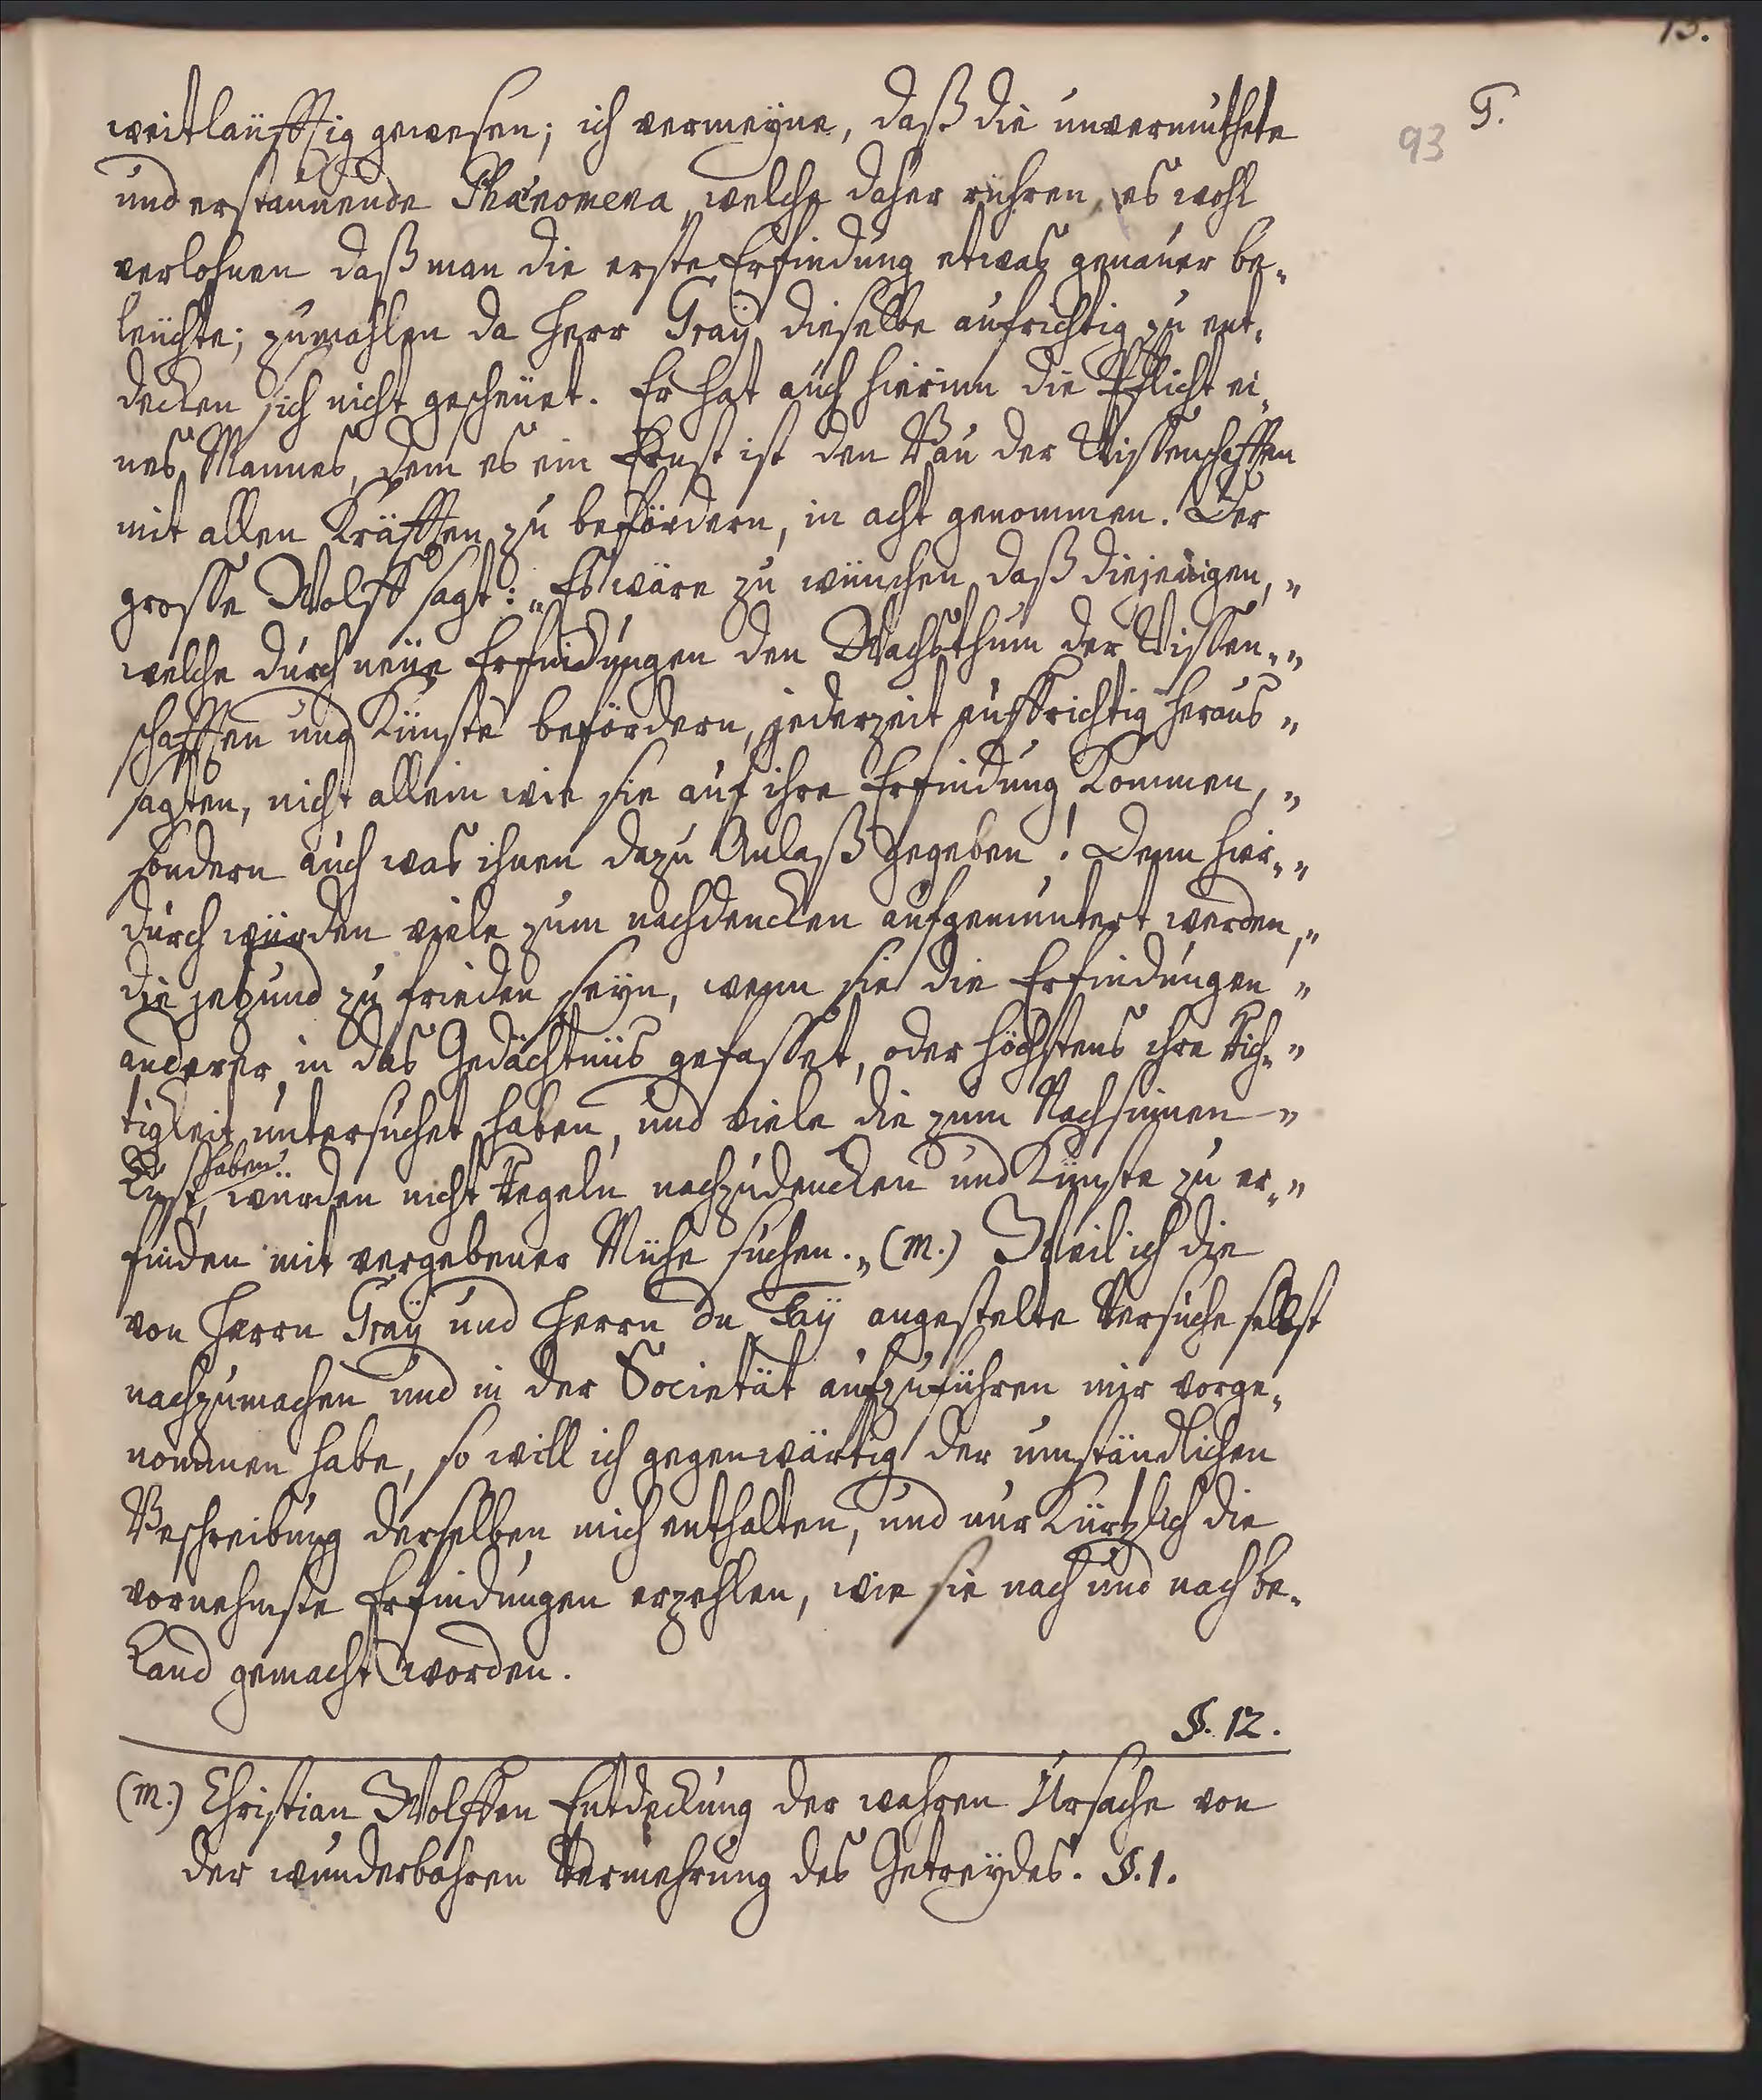 13.
G.
93
weitläufftig gewesen; ich vermeyne, daß die unvermuthete
und erstaunende Phænomena, welche daher rühren, es wohl
verlohnen daß man die erste Erfindung etwas genauer be-
leuchte; zumahlen da Herr Graÿ dieselbe aufrichtig zu ent-
decken sich nicht gescheuet. Er hat auch hierinn die Pflicht ei-
nes Mannes, dem es ein Ernst ist den Bau der Wissenschafften
mit allen Kräfften zu befördern, in acht genommen. Der
grosse Wolff sagt: „Es wäre zu wünschen, daß diejenigen, „
welche durch neue Erfindungen den Wachsthum der Wissen- „
schafften und Künste befördern, jederzeit auffrichtig heraus „
sagten, nicht allein wie sie auf ihre Erfindung kommen, „
sondern auch was ihnen dazu Anlaß gegeben! Denn hier- „
durch würden viele zum nachdencken aufgemuntert werden, „
die jetzund zu frieden seyn, wenn sie die Erfindungen „
anderer in das Gedächtnüs gefasset, oder höchstens ihre Rich- „
tigkeit untersuchet haben, und viele die zum Nachsinnen „
Lust haben, würden nicht Regeln nachzudencken und Künste zu er- „
finden mit vergebener Mühe suchen. „ (m.) Weil ich die
von Herrn Graÿ und Herrn du Faÿ angestelte Versuche selbst
nachzumachen und in der Societät aufzuführen mir vorge-
nommen habe, so will ich gegenwärtig der umständlichen
Beschreibung derselben mich enthalten, und nur kürtzlich die
vornehmste Erfindungen erzehlen, wie sie nach und nach be-
kand gemacht worden.
§. 12.
(m.) Christian Wolffen Entdeckung der wahren Ursache von
der wunderbahren Vermehrung des Getreydes. §. 1.